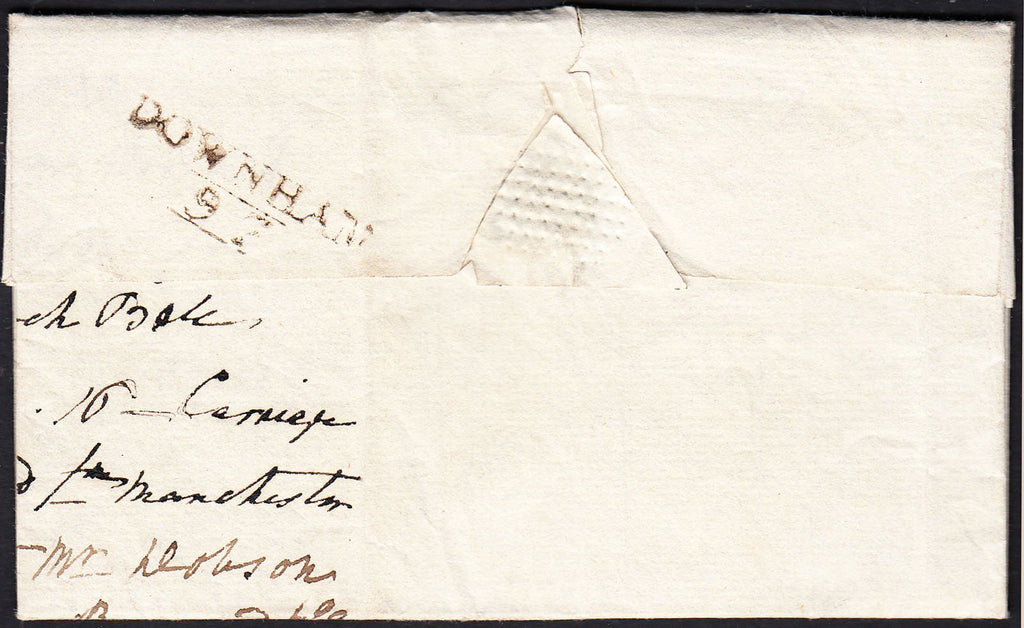 DOWNHAM
97
ch Bale
10 — Carriage
fm Manchester
Mr Dobson